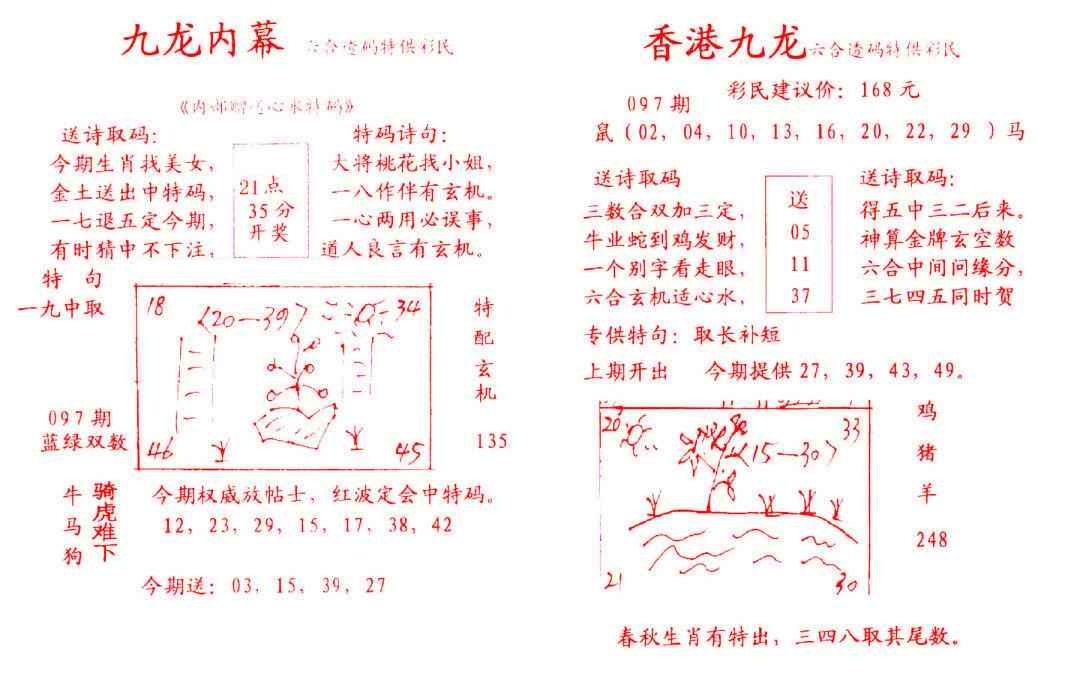 九龙内幕 六合透码特供彩民
送诗取码：
今期生肖找美女，
金土送出中特码，
一七退五定今期，
有时猜中不下注，
21点
35分
开奖
特码诗句：
大将桃花找小姐，
一八作伴有玄机。
一心两用必误事，
道人良言有玄机。
特 句
一九中取
097期
蓝绿双数
18
〈20—39〉
34
46
45
特
配
玄
机
135
牛
马
狗
骑
虎
难
下
今期权威放帖士，红波定会中特码。
12，23，29，15，17，38，42
今期送：03，15，39，27
香港九龙 六合透码特供彩民
彩民建议价：168元
097期
鼠（02，04，10，13，16，20，22，29 ）马
送诗取码
三数合双加三定，
牛业蛇到鸡发财，
一个别字看走眼，
六合玄机适心水，
送
05
11
37
送诗取码：
得五中三二后来。
神算金牌玄空数
六合中间问缘分，
三七四五同时贺
专供特句：取长补短
上期开出 今期提供27，39，43，49。
20
33
〈15—30〉
21
30
鸡
猪
羊
248
春秋生肖有特出，三四八取其尾数。